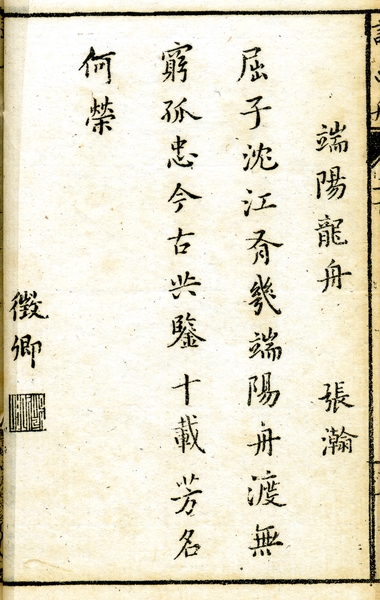 端陽龍舟　張瀚
屈子沈江有幾端陽舟渡無
窮孤忠今古共鑒十載芳名
何榮
徵卿